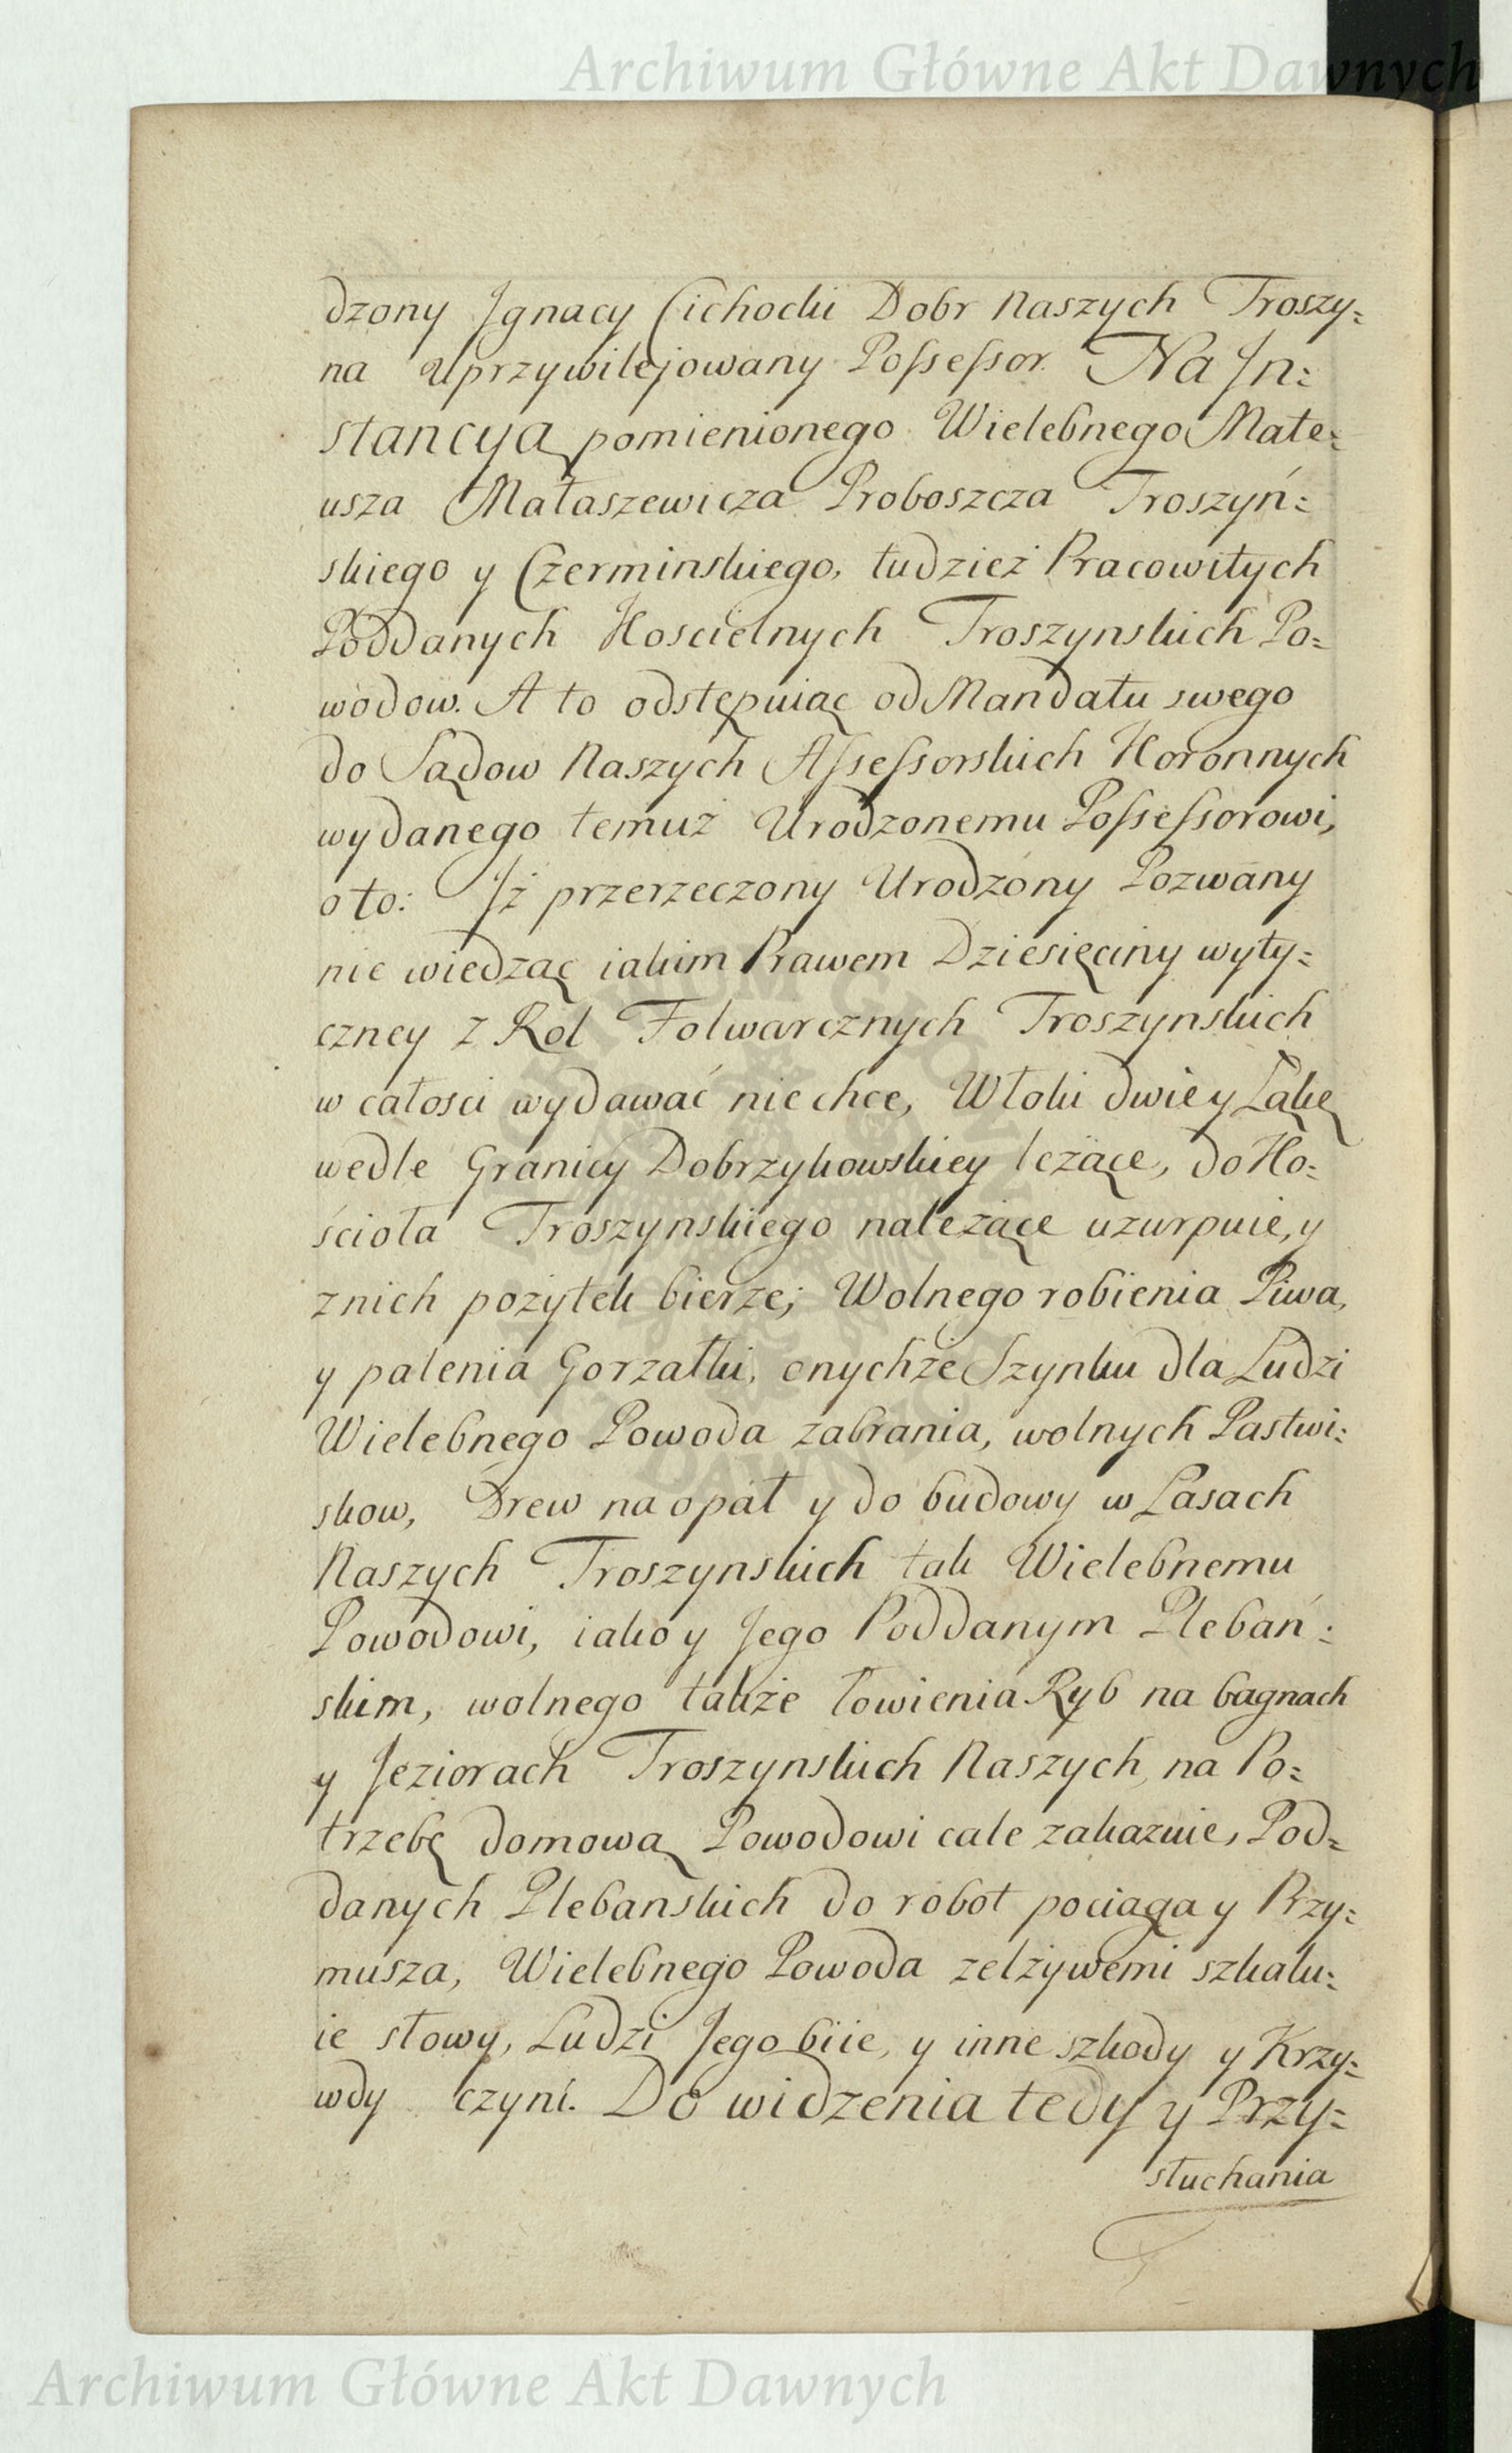 Archiwum Główne Akt Dawnych
dzony Ignacy Cichocki Dobr Naszych Troszy=
na Uprzywilejowany Poſseſsor. Na In=
stancyą pomienionego Wielebnego Mate=
usza Mataszewicza Proboszcza Troszyń=
skiego y Czerminskiego, tudzież Pracowitych
Poddanych Koscielnych Troszynskich Po=
wodow. A to odstępuiąc od Mandatu swego
do Sądow Naszych Aſseſsorskich Koronnych
wydanego temuż Urodzonemu Poſseſsorowi,
oto: Iż przerzeczony Urodzony Pozwany
nie wiedząc iakim Prawem Dziesięciny wyty=
czney z Rol Folwarcznych Troszynskich
w całosci wydawać nie chce, Włoki dwie y Łąkę
wedle Granicy Dobrzykowskiey leżące, do Ko=
ścioła Troszynskiego należące uzurpuie, y
znich pożytek bierze; Wolnego robienia Piwa,
y palenia Gorzałki, onychże Szynku dla Ludzi
Wielebnego Powoda zabrania, wolnych Pastwi=
skow, Drew na opał y do budowy w Lasach
Naszych Troszynskich tak Wielebnemu
Powodowi, iako y Jego Poddanym Plebań=
skim, wolnego także łowienia Ryb na bagnach
y Jeziorach Troszynskich Naszych, na Po=
trzebę domową Powodowi cale zakazuie, Pod=
danych Plebanskich do robot pociąga y Przy=
musza, Wielebnego Powoda zelżywemi szkalu=
ie słowy, Ludzi Jego biie, y inne szkody y Krzy=
wdy czyni. Do widzenia tedy y Przy=
słuchania
Archiwum Główne Akt Dawnych